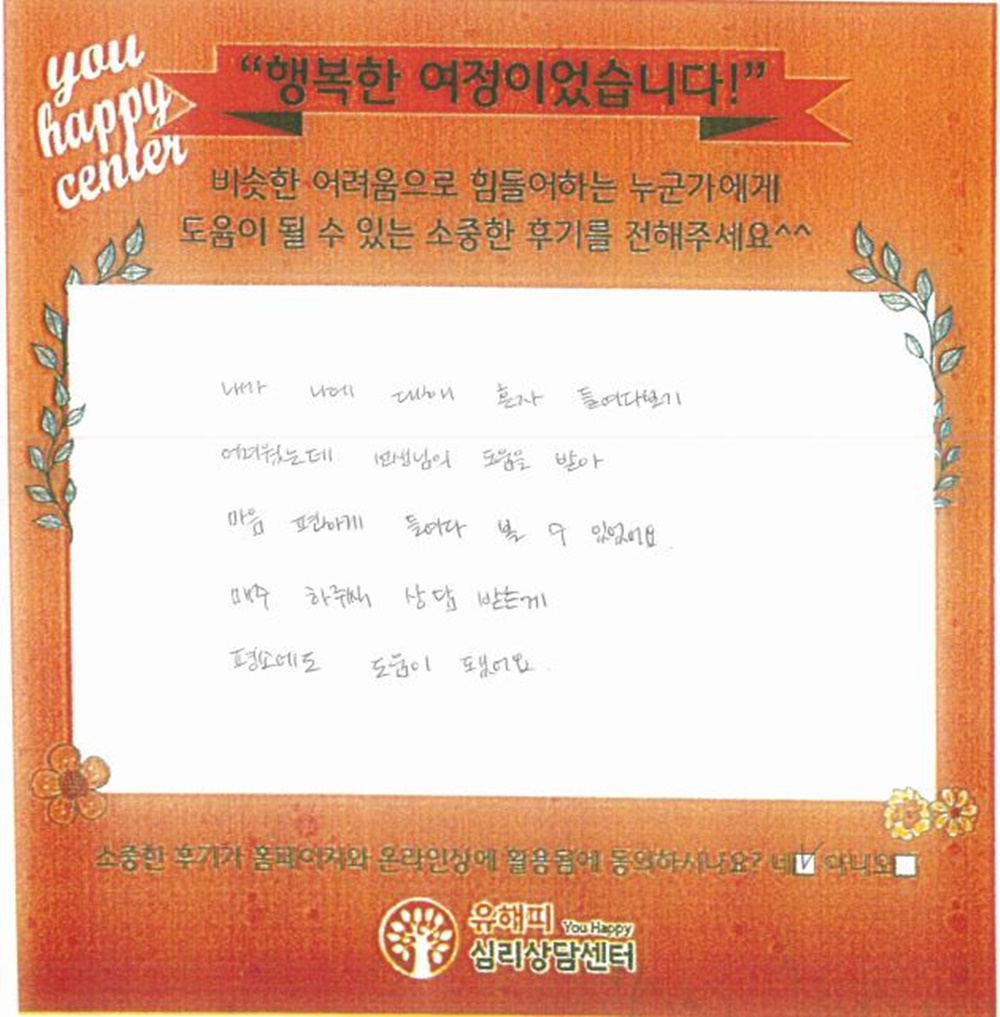 you
happy
center
“행복한 여정이었습니다!”
비슷한 어려움으로 힘들어하는 누군가에게
도움이 될 수 있는 소중한 후기를 전해주세요^^
내가 나에 대해 혼자 들여다보기
어려웠는데 선생님의 도움을 받아
마음 편하게 들여다 볼 수 있었어요.
매주 하주씩 상담 받는게
평소에도 도움이 됐어요.
소중한 후기가 홈페이지와 온라인상에 활용됨에 동의하시나요? 네 아니오
유해피 You Happy
심리상담센터